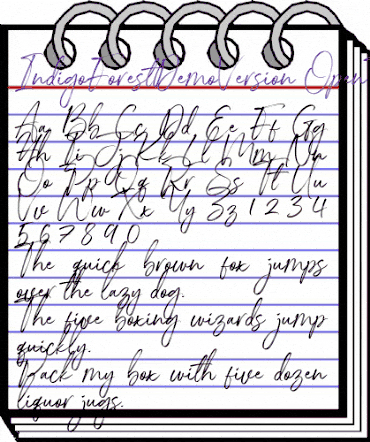 IndigoForestDemoVersion Open
Aa Bb Cc Dd Ee Ff Gg
Hh Ii Jj Kk Ll Mm Nn
Oo Pp Qq Rr Ss Tt Uu
Vv Ww Xx Yy Zz 1 2 3 4
5 6 7 8 9 0
The quick brown fox jumps
over the lazy dog.
The five boxing wizards jump
quickly.
Pack my box with five dozen
liquor jugs.